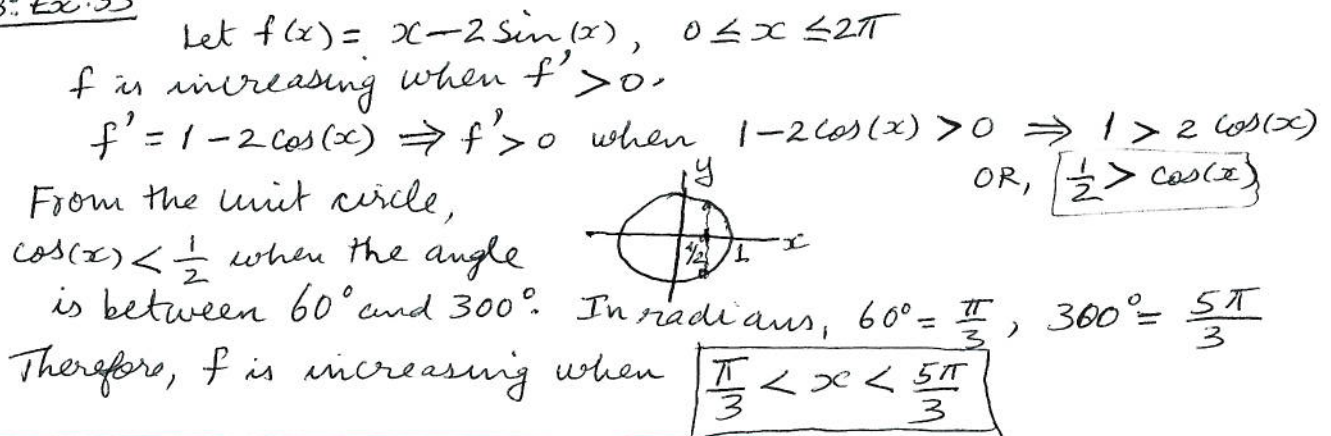 Let f(x) = x-2 sin(x), 0 ≤ x ≤ 2π
f is increasing when f' > 0.
f' = 1-2 cos(x) ⇒ f' > 0 when 1-2 cos(x) > 0 ⇒ 1 > 2 cos(x)
OR, 1/2 > cos(x)
From the unit circle,
y
x
1/2
1
cos(x) < 1/2 when the angle
is between 60° and 300°. In radians, 60° = π/3, 300° = 5π/3
Therefore, f is increasing when π/3 < x < 5π/3